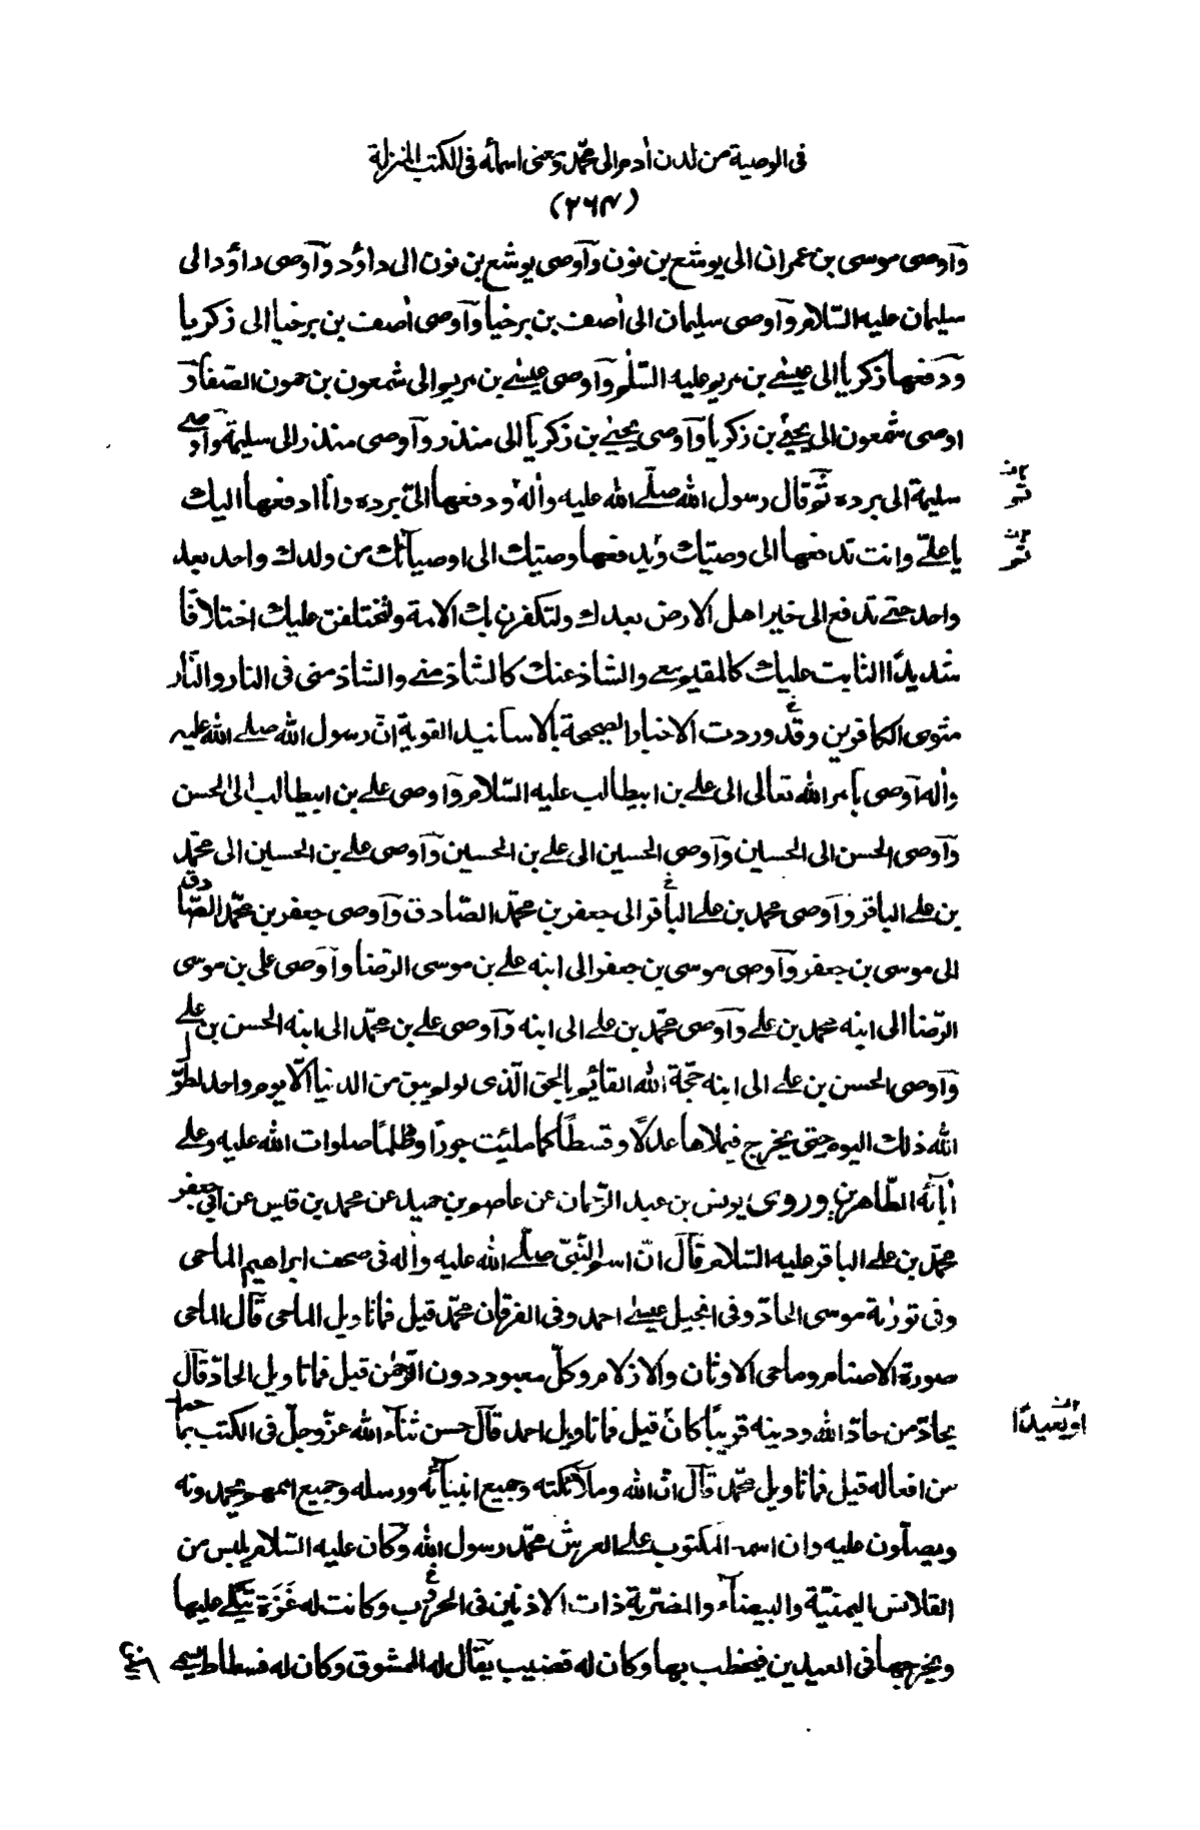 فى الوصية من لدن أدم الى محمّد ومعنى اسمائه فى الكتب المنزلة
(٢٦٧)
وَآوصى موسى بن عمران الى يوشع بن نون وَآوصى يوشع بن نون الى داؤد وَآوصى داؤد الى
سليمان عليه السّلام وَآوصى سليمان الى أصف بن برخيا وَآوصى أصف بن برخيا الى زكريا
وَدفعها زكريا الى عيسى بن مريم عليه السّلٰم وَآوصى عيسى بن مريم الى شمعون بن حمون الصّفا وَ
اوصى شمعون الى يحيى بن زكريا وَآوصى يحيى بن زكريا الى منذر وآوصى منذر الى سليمة وآوصى
سليمة الى برده ثمّ قال رسول الله صلّى الله عليه وأله ودفعها الىّ برده وانا ادفعها اليك
يا علىّ وانت تدفعها الى وصيّك ويدفعها وصيّك الى اوصيائك من ولدك واحد بعد
واحد حتى تدفع الى خير اهل الارض بعدك ولتكفرن بك الامة ولتختلفن عليك اختلافًا
شديدًا الثابت عليك كالمقيم معى والشاذ عنك كالشاذ منى والشاذ منى فى النار والنّار
مثوى الكافرين وقد وردت الاخبار الصحيحة بالاسانيد القوية انّ رسول الله صلى الله عليه
وأله آوصى بامر الله تعالى الى على بن ابيطالب عليه السّلام وَآوصى على بن ابيطالب الى الحسن
وَآوصى الحسن الى الحسين وَآوصى الحسين الى على بن الحسين وَآوصى على بن الحسين الى محمّد
بن على الباقر وَآوصى محمد بن على الباقر الى جعفر بن محمّد الصّادق وَآوصى جعفر بن محمّد الصّادق
الى موسى بن جعفر وَآوصى موسى بن جعفر الى ابنه على بن موسى الرّضا وَآوصى على بن موسى
الرّضا الى ابنه محمد بن على وَآوصى محمّد بن على الى ابنه وَآوصى على بن محمّد الى ابنه الحسن بن على
وَآوصى الحسن بن على الى ابنه حجّة الله القائم بالحق الّذى لو لم يبق من الدنيا الّا يوم واحد لطوّل
الله ذلك اليوم حتى يخرج فيملاها عدلًا وقسطًا كما ملئت جورًا وظلمًا صلوات الله عليه وعلى
أبائه الطّاهرين وروى يونس بن عبد الرّحمان عن عاصم بن حميد عن محمد بن قيس عن ابى جعفر
محمّد بن على الباقر عليه السّلام قال انّ اسم النّبىّ صلّى الله عليه وأله فى صحف ابراهيم الماحى
وفى تورٰية موسى الحادّ وفى انجيل عيسى احمد وفى الفرقان محمّد قيل فما تاويل الماحى قَال الماحى
صورة الاصنام وماحى الاوثان والازلام وكلّ معبود دون الرّحمٰن قيل فما تاويل الحادّ قال
يحادّ من حادّ الله ودينه قريبًا كان قيل فما تاويل احمد قال حسن ثناء الله عزّ وجلّ فى الكتب بما حمد
اوبعيدًا
من افعاله قيل فما تاويل محمّد قال انّ الله وملائكته وجميع انبيائه ورسله وجميع اممهم يحمدونه
ويصلّون عليه وان اسمه المكتوب على العرش محمّد رسول الله وكان عليه السّلام يلبس من
القلانس اليمنيّة والبيضاء والمضرّبة ذات الاذنين فى الحرب وكانت له عَنَزَة يتّكى عليها
ويخرجها فى العيدين فيخطب بها وكان له قضيب يقال له الممشوق وكان له فسطاط يسمى